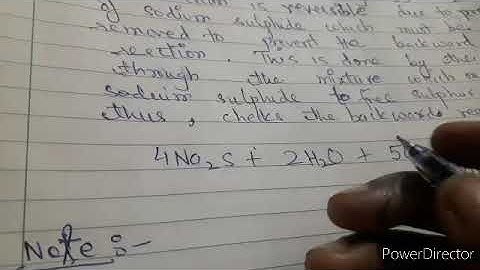 is reversible due to
of sodium sulphide which must be
removed to prevent the backward
reaction. This is done by
through the mixture which
sodium sulphide to free sulphur
thus, checks the backwards rea
4Na2S + 2H2O + 5
Note :-
PowerDirector